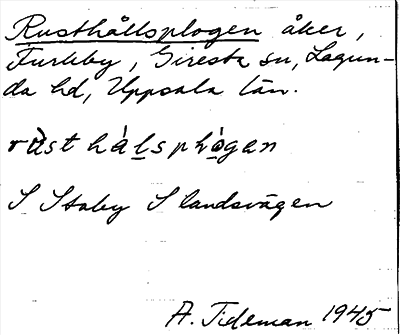 Rusthållsplogen åker,
Furkby, Giresta sn, Lagun-
da hd, Uppsala län.
rùst hålsplógen
S Staby S landsvägen
A. Tideman 1945